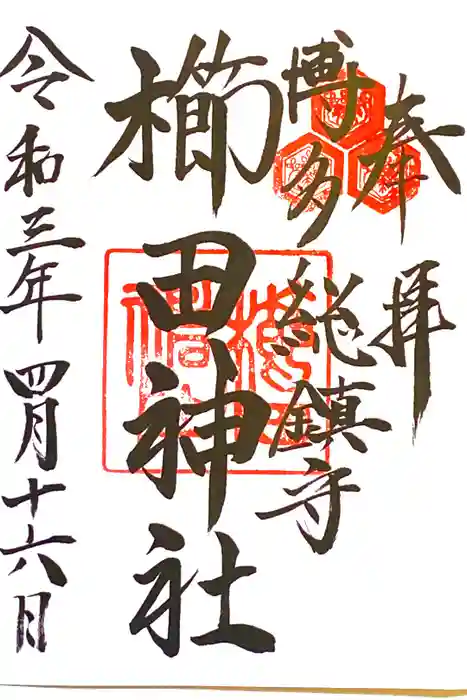 奉拝
博多総鎮守
櫛田神社
令和三年四月十六日